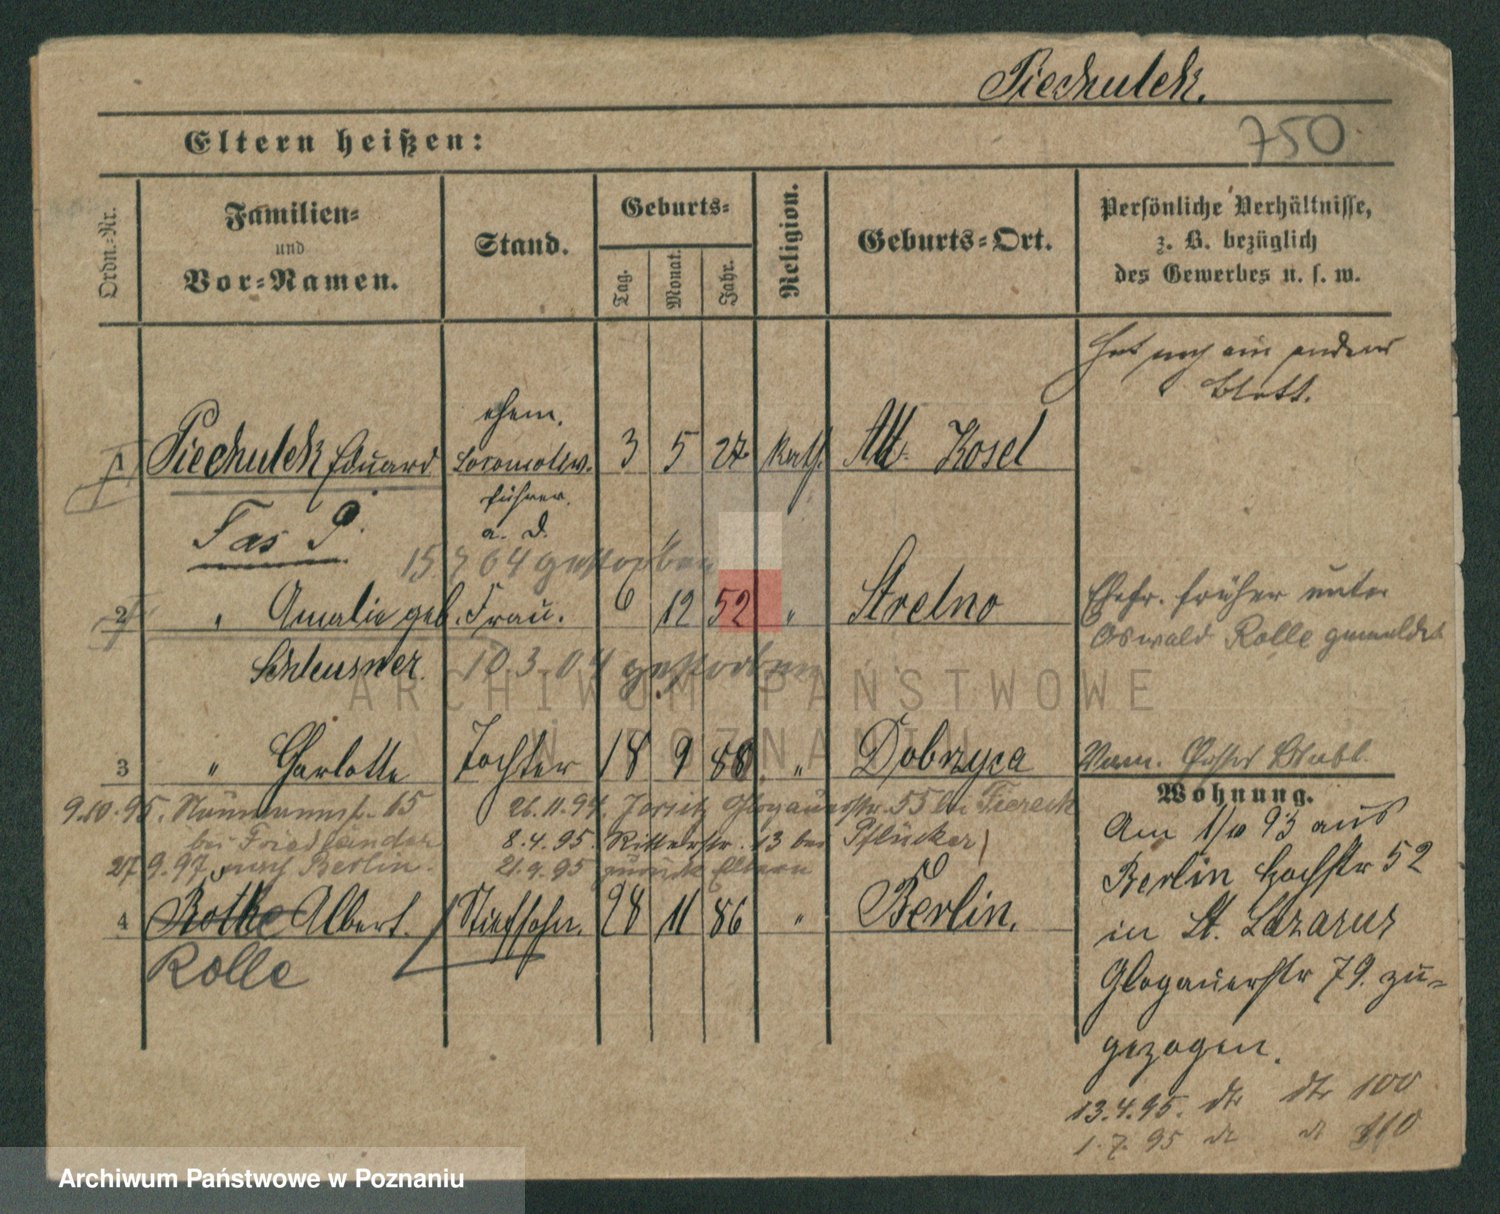 Piechulek.
750
Eltern heißen:
Ordn.-Nr.
Familien-
und
Vor-Namen.
Stand.
Geburts-
Tag.
Monat.
Jahr.
Religion.
Geburts-Ort.
Persönliche Verhältnisse,
z. B. bezüglich
des Gewerbes u. s. w.
Hat noch ein anderes
Blatt.
ehem.
1 Piechulek Eduard Locomotiv- 3 5 27 Kath. Alt Kosel
führer
a. D.
Fas P.
15. 7 04 gestorben
2 " Amalie geb. Frau. 6 12 52 " Strelno
Schleusner.
10.3.04 gestorben
Ehefr. früher unter
Oswald Rolle gemeldet
ARCHIWUM PAŃSTWOWE
W POZNANIU
3 " Charlotte Tochter 18 9 88 " Dobrzyca
9.10.95. 65 26.11.94. Jersitz Glogauerstr. 55 bei
bei Friedländer 8.4.95. Ritterstr. 13 bei Pflücker
27.9.97 nach Berlin. 21.9.95 zurück Eltern
4 Rothe Albert. Stiefsohn. 28 11 86 " Berlin.
Rolle
Wohnung.
Am 1/10 93 aus
Berlin Hochstr 52
in St. Lazarus
Glogauerstr 79. zu-
gezogen.
13.4.95. dto dto 100
1.7.95 dto dto 110
Archiwum Państwowe w Poznaniu